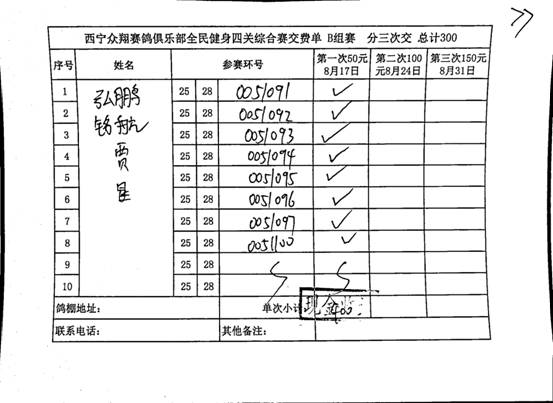 77
西宁众翔赛鸽俱乐部全民健身四关综合赛交费单 B组赛 分三次交 总计300
序号 姓名 参赛环号 第一次50元 8月17日 第二次100元8月24日 第三次150元 8月31日
1 弘鹏 25 28 0051091 ✓
2 铭航 25 28 0051092 ✓
3 贾 25 28 0051093 ✓
4 25 28 0051094 ✓
5 25 28 0051095 ✓
6 25 28 0051096 ✓
7 25 28 0051097 ✓
8 25 28 0051100 ✓
9 25 28
10 25 28
鸽棚地址: 单次小计 现金 400
联系电话: 其他备注: